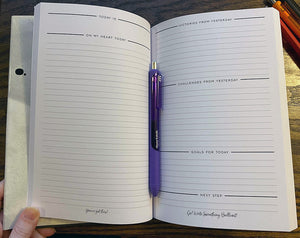 TODAY IS
ON MY HEART TODAY
You've got this!
VICTORIES FROM YESTERDAY
CHALLENGES FROM YESTERDAY
GOALS FOR TODAY
NEXT STEP
Go! Write Something Brilliant!